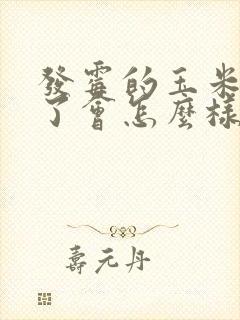 發霉的玉米
了會怎麼樣
壽元丹